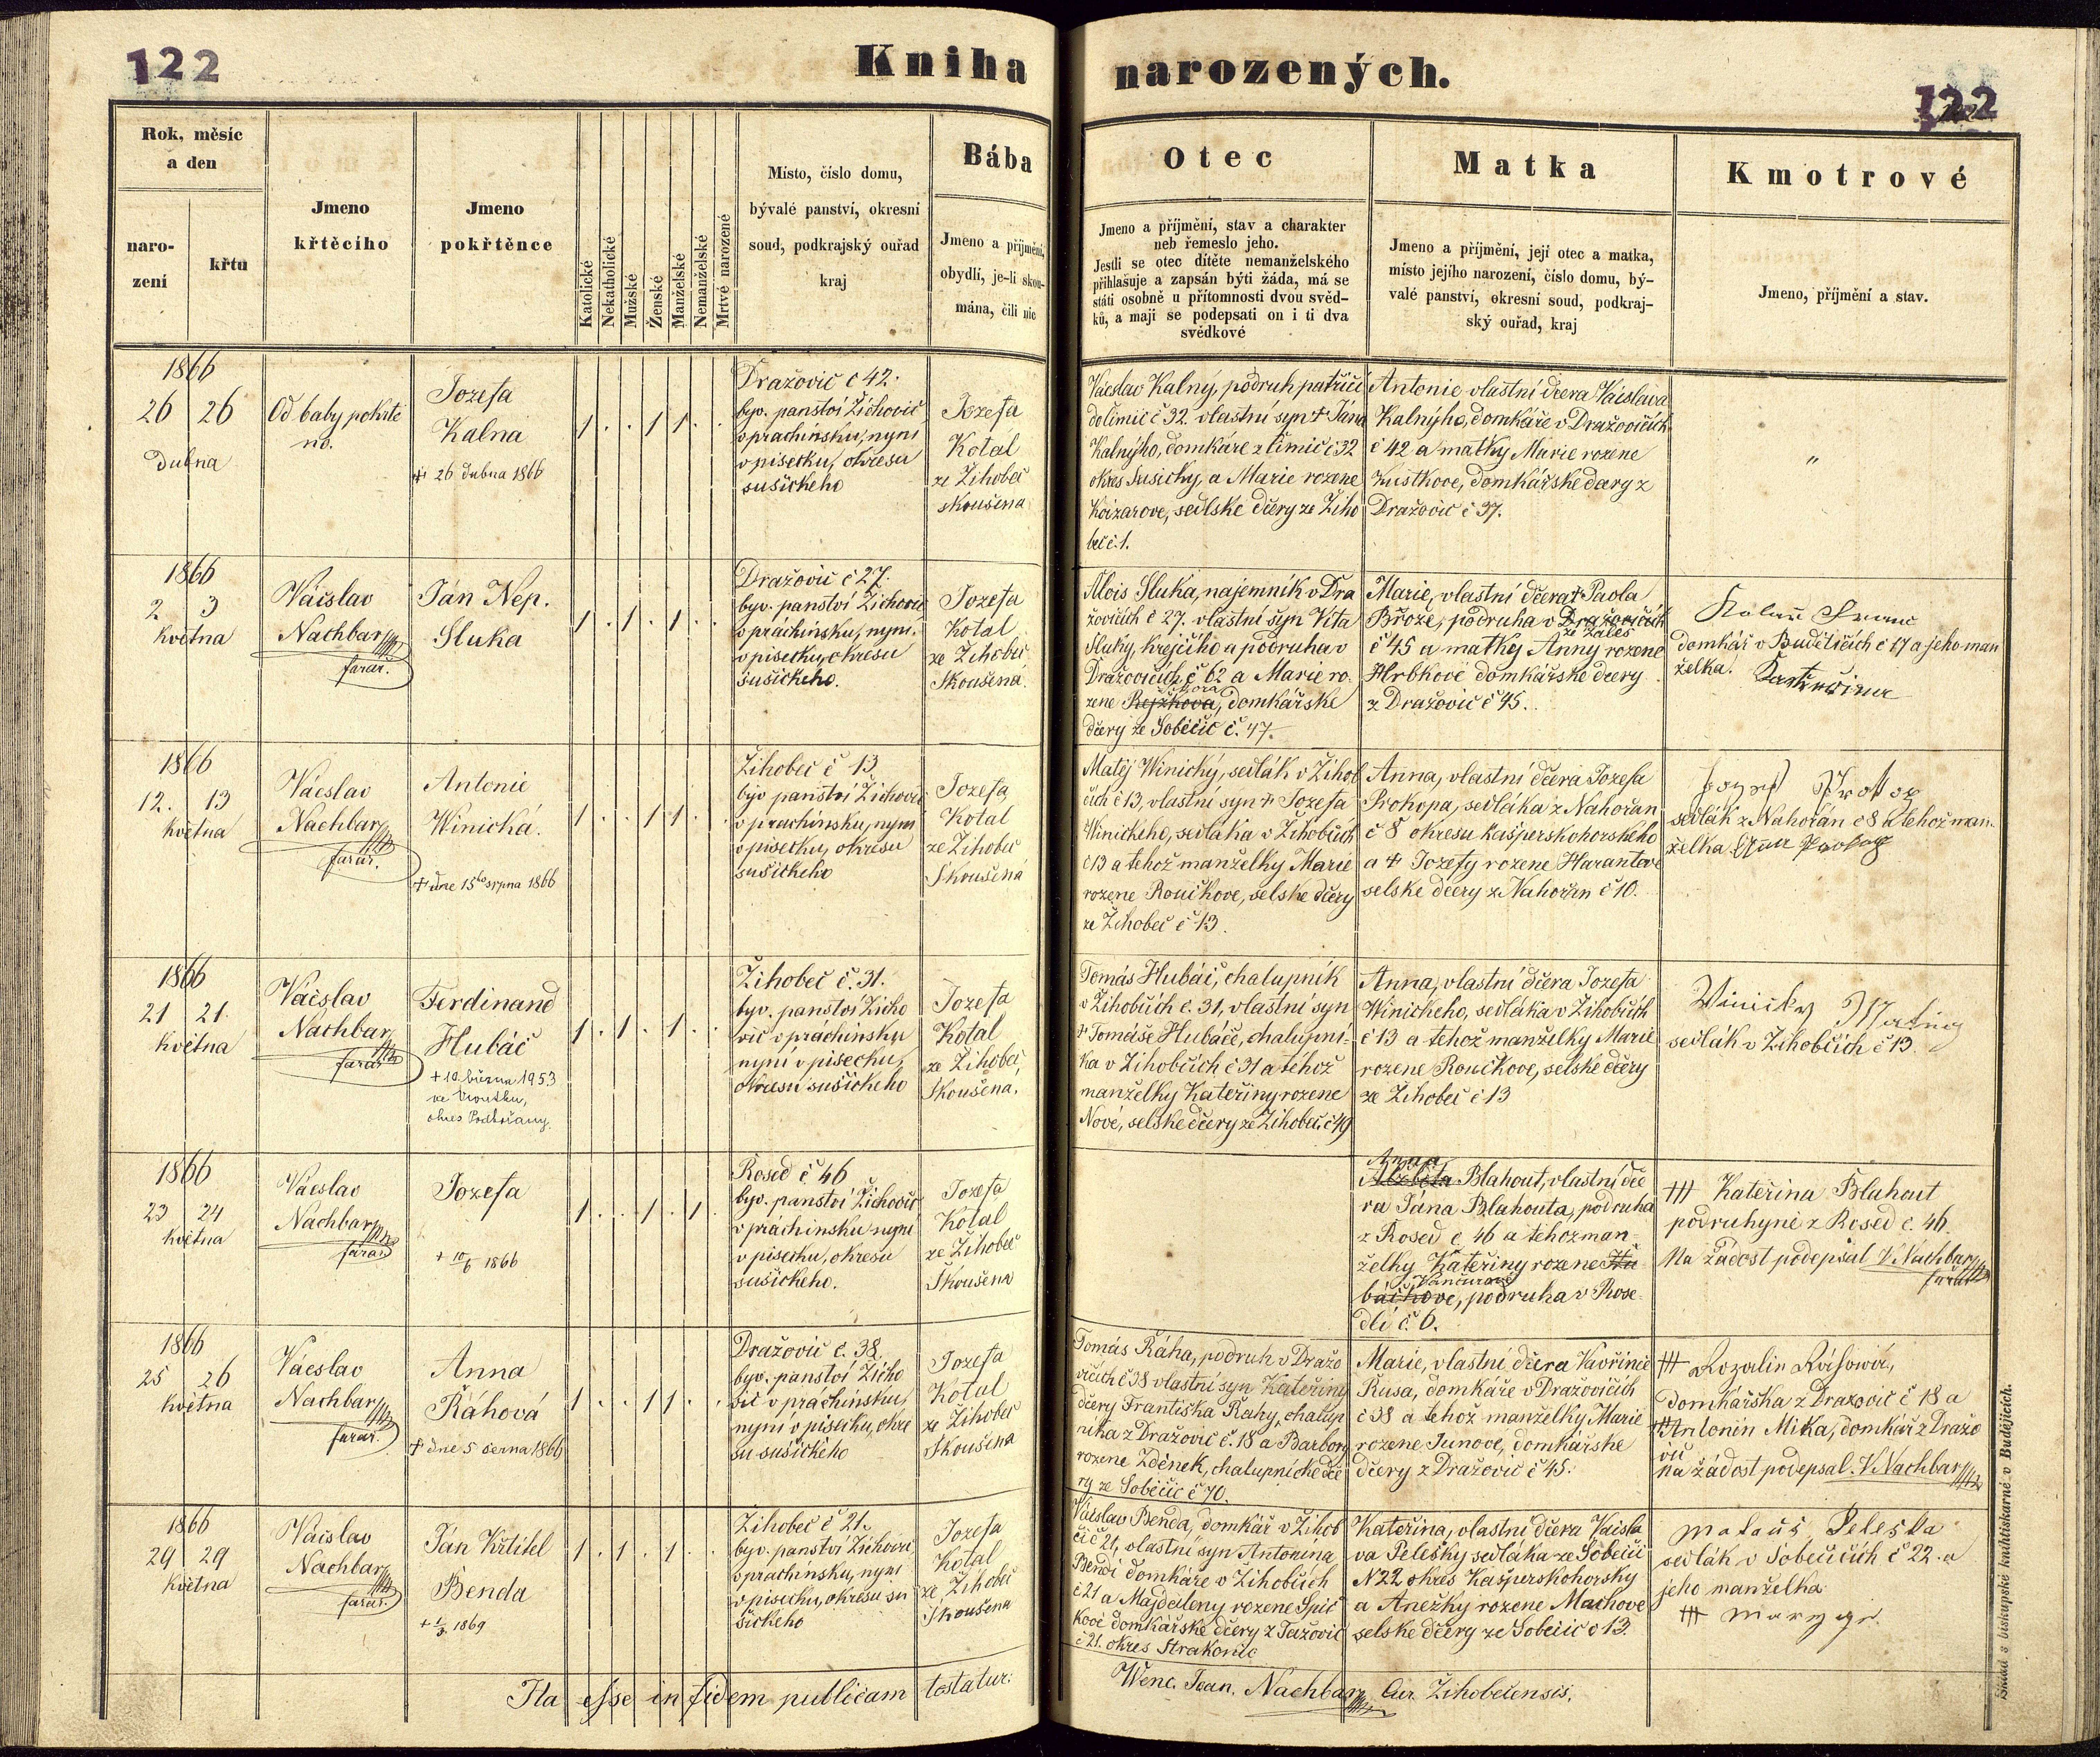 122
Kniha narozených.
122
Rok, měsíc
a den
naro-
zení
křtu
Jmeno
křtěcího
Jmeno
pokřtěnce
Katolické
Nekatholické
Mužské
Ženské
Manželské
Nemanželské
Mrtvě narozené
Místo, číslo domu,
bývalé panství, okresní
soud, podkrajský ouřad
kraj
Bába
Jmeno a příjmění,
obydlí, je-li skou-
mána, čili nic
Otec
Jmeno a příjmění, stav a charakter
neb řemeslo jeho.
Jestli se otec dítěte nemanželského
přihlašuje a zapsán býti žáda, má se
státi osobně u přítomnosti dvou svěd-
ků, a mají se podepsati on i ti dva
svědkové
Matka
Jmeno a příjmění, její otec a matka,
místo jejího narození, číslo domu, bý-
valé panství, okresní soud, podkraj-
ský ouřad, kraj
Kmotrové
Jmeno, příjmění a stav.
1866
26 26
dubna
Od baby pokřtě
no.
Jozefa
Kalna
+ 26 dubna 1866
1 . . 1 1 . .
Dražovic č 42.
byv. panství Žichovic
v prachinsku, nyni
v pisecku, okresu
sušickeho
Jozefa
Kotal
ze Žihobec
skoušena
Václav Kalný, podruh patřící
do Čimic č 32. vlastní syn + Jána
Kalnýho, domkáře z Čimic č 32
okres Susicky, a Marie rozene
Krizarove, sedlské dcery ze Žiho
bec č.1.
Antonie, vlastní dcera Vácslava
Kalnýho, domkáře v Dražovicích
č 42 a matky Marie rozene
Kustkove, domkářské dcery z
Dražovic č 37.
"
1866
2 3
Května
Václav
Nachbar
farář.
Ján Nep.
Sluka
1 . 1 . 1 . .
Dražovic č 27.
byv. panství Žichovic
v práchinsku, nyni
v pisecku, okresu
sušickeho.
Jozefa
Kotál
ze Žihobec
Skoušená.
Alois Sluka, najemník v Dra
žovicích č 27. vlastní syn Víta
Sluky, krejčího a podruha v
Dražovicích č 62 a Marie ro-
zene Rejžkova, domkářske
dcery ze Soběšic č. 47.
Marie, vlastní dcera + Paola
Brože, podruha v Dražovicích
ze Zales
č 45 a matky Anny rozene
Hrbkové domkářske dcery
z Dražovic č 45.
domkář v Budětících č 17 a jeho man
želka.
1866
12. 13
Května
Václav
Nachbar
farář.
Antonie
Winická.
+ dne 15ho srpna 1866
1 . . 1 1 . .
Žihobec č 13
byv panství Žichovic
v prachinsku, nyni
v pisecku, okresu
sušickeho
Jozefa
Kotal
ze Žihobec
Skoušená
Matěj Winický, sedlák v Žihob
cích č 13, vlastní syn + Jozefa
Winického, sedláka v Žihobcích
č 13 a tehož manželky Marie
rozene Roučkove, selske dcery
ze Žihobec č 13.
Anna, vlastní dcera Jozefa
Prokopa, sedláka z Nahořan
č 8 okresu kašperskohorského
a + Jozefy rozene Harantove
selske dcery z Nahořan č 10.
sedlák z Nahořan č 8 a tehož man-
želka
1866
21 21.
Května
Václav
Nachbar
farář
Ferdinand
Hubáč
+ 10. března 1953
ve Vroutku,
okres Podbořany.
1 . 1 . 1 . .
Žihobec č. 31.
byv. panství Žicho
vic v práchinsku
nyní v pisecku,
okresu sušického
Jozefa
Kotal
ze Žihobec,
Skoušena.
Tomás Hubáč, chalupník
v Žihobcích č. 31, vlastní syn
+ Tomáše Hubáče, chalupní-
ka v Žihobcích č 31 a téhož
manželky Kateřiny rozene
Nové, selske dcery ze Žihobec č 49
Anna, vlastní dcera Jozefa
Winického, sedláka v Žihobcích
č 13 a tehož manželky Marie
rozene Roučkove, selské dcery
ze Žihobec č 13
Winicky Matieg
sedlák v Žihobcích č 13.
1866
23 24
Května
Václav
Nachbar
farář
Jozefa
+ 10/6 1866
1 . . 1 . 1 .
Rosed č 46
byv. panství Žichovic
v práchinsku nyni
v pisecku, okresu
sušickeho.
Jozefa
Kotal
ze Žihobec
Skoušena
Anna
Alžběta Blahout, vlastní dce
ra Jána Blahouta, podruha
z Rosed č. 46 a tehož man-
želky Kateřiny rozene Hu
Vančurove
bačkove, podruha v Rose-
dli č. 6.
+++ Kateřina Blahout
podruhyně z Rosed č. 46.
Na žádost podepsal V. Nachbar
farář
1866
25 26
Května
Václav
Nachbar
farář.
Anna
Ráhová
+ dne 5 černa 1866
1 . . 1 1 . .
Dražovic č. 38.
byv. panství Žicho
vic v práchinsku,
nyní v pisecku, okre
su sušického
Jozefa
Kotal
ze Žihobec
Skoušena
Tomás Ráha, podruh v Dražo
vicích č 38 vlastní syn Kateřiny
dcery Františka Rahy, chalup
níka z Dražovic č. 18 a Barbory
rozene Zděnek, chalupnické dce
ry ze Soběšic č 70.
Marie, vlastní dcera Vavřince
Rusa, domkáře v Dražovicích
č 38 a tehož manželky Marie
rozene Junove, domkářske
dcery z Dražovic č 45.
+++ Rozalie
domkářka z Dražovic č 18 a
+++ Antonín Mika, domkář z Dražo
vic
na žádost podepsal V. Nachbar
1866
29 29
Května
Václav
Nachbar
farář.
Ján Křtitel
Benda
+ 1/3. 1869
1 . 1 . 1 . .
Žihobec č 21.
byv. panství Žichovic
v prachinsku, nyni
v pisecku, okresu su
šickeho
Jozefa
Kotal
ze Žihobec
Skoušena
Václav Benda, domkář v Žihob
cí č 21, vlastní syn Antonína
Bendi domkáře v Žihobcích
č 21 a Majdeleny rozene Špič
kove domkářské dcery z Tažovic
č 21. okres Strakonic
Kateřina, vlastní dcera Václa
va Pelešky sedláka ze Soběšic
N 22 okres Kašperskohorsky
a Anežky rozene Machove
selske dcery ze Soběšic č 13.
Mataus Peleska
sedlák v Soběšicích č 22. a
jeho manželka
+++
Ita esse in fidem publicam testatur:
Wenc. Joan. Nachbar, Cur. Žihobecensis.
Sklad s biskupské knihtiskarně v Budějicích.